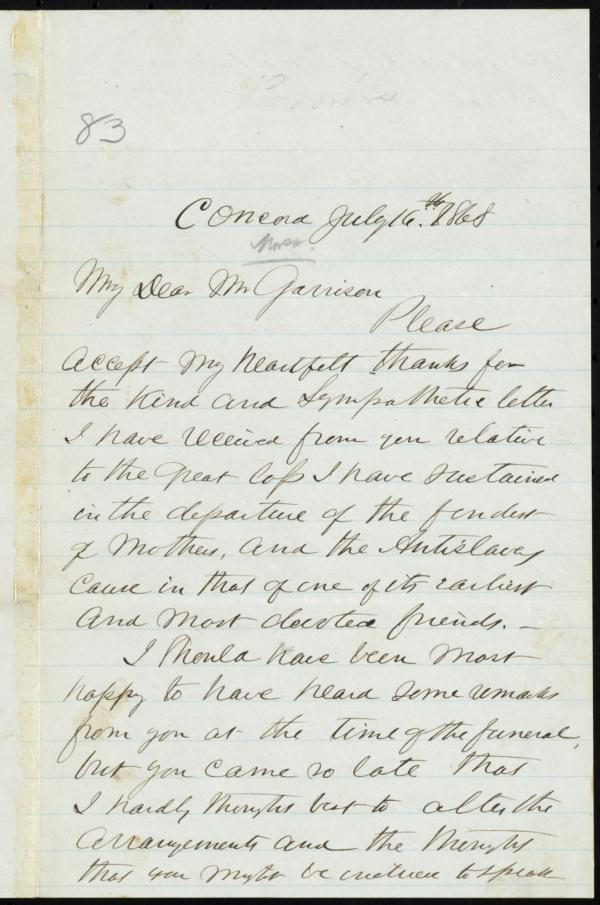 83
Concord July 16.th 1868
Mass.
My Dear Mr Garrison
Please
accept my heartfelt thanks for
the kind and Sympathetic letter
I have received from you relative
to the great loss I have sustained
in the departure of the fondest
of Mothers, and the Antislavery
cause in that of one of its earliest
and most devoted friends. —
I should have been most
happy to have heard some remarks
from you at the time of the funeral,
but you came so late that
I hardly thought best to alter the
arrangements and the thought
that you might be induced to speak